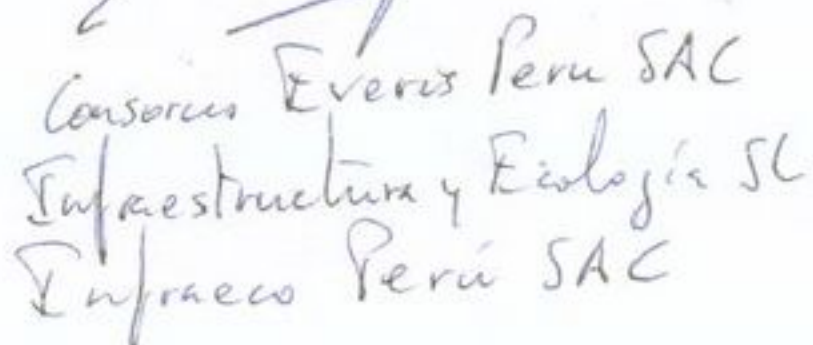 Consorcio Everis Peru SAC
Infraestructura y Ecología SL
Infraeco Perú SAC